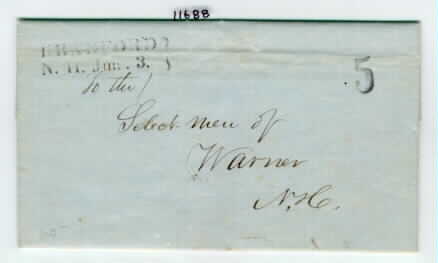 11688
BRADFORD
N. H. Jan. 3.
5
To the
Select men of
Warner
N.H.